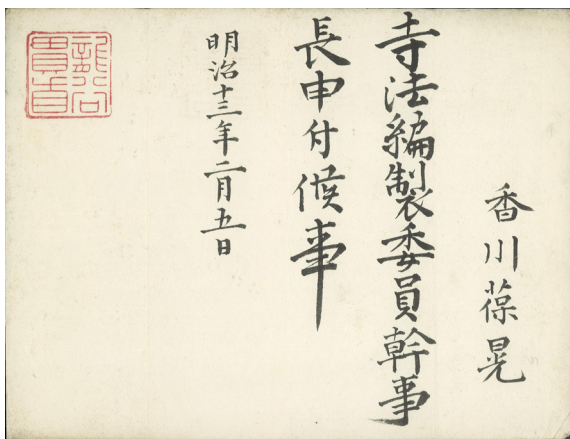 香川葆晃
寺法編製委員幹事
長申付候事
明治十三年二月五日
龍谷貫首